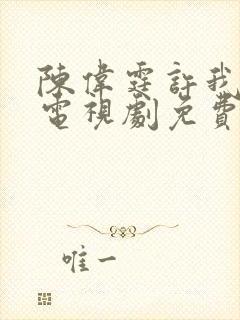 陳偉霆許我
電視劇免費
唯一